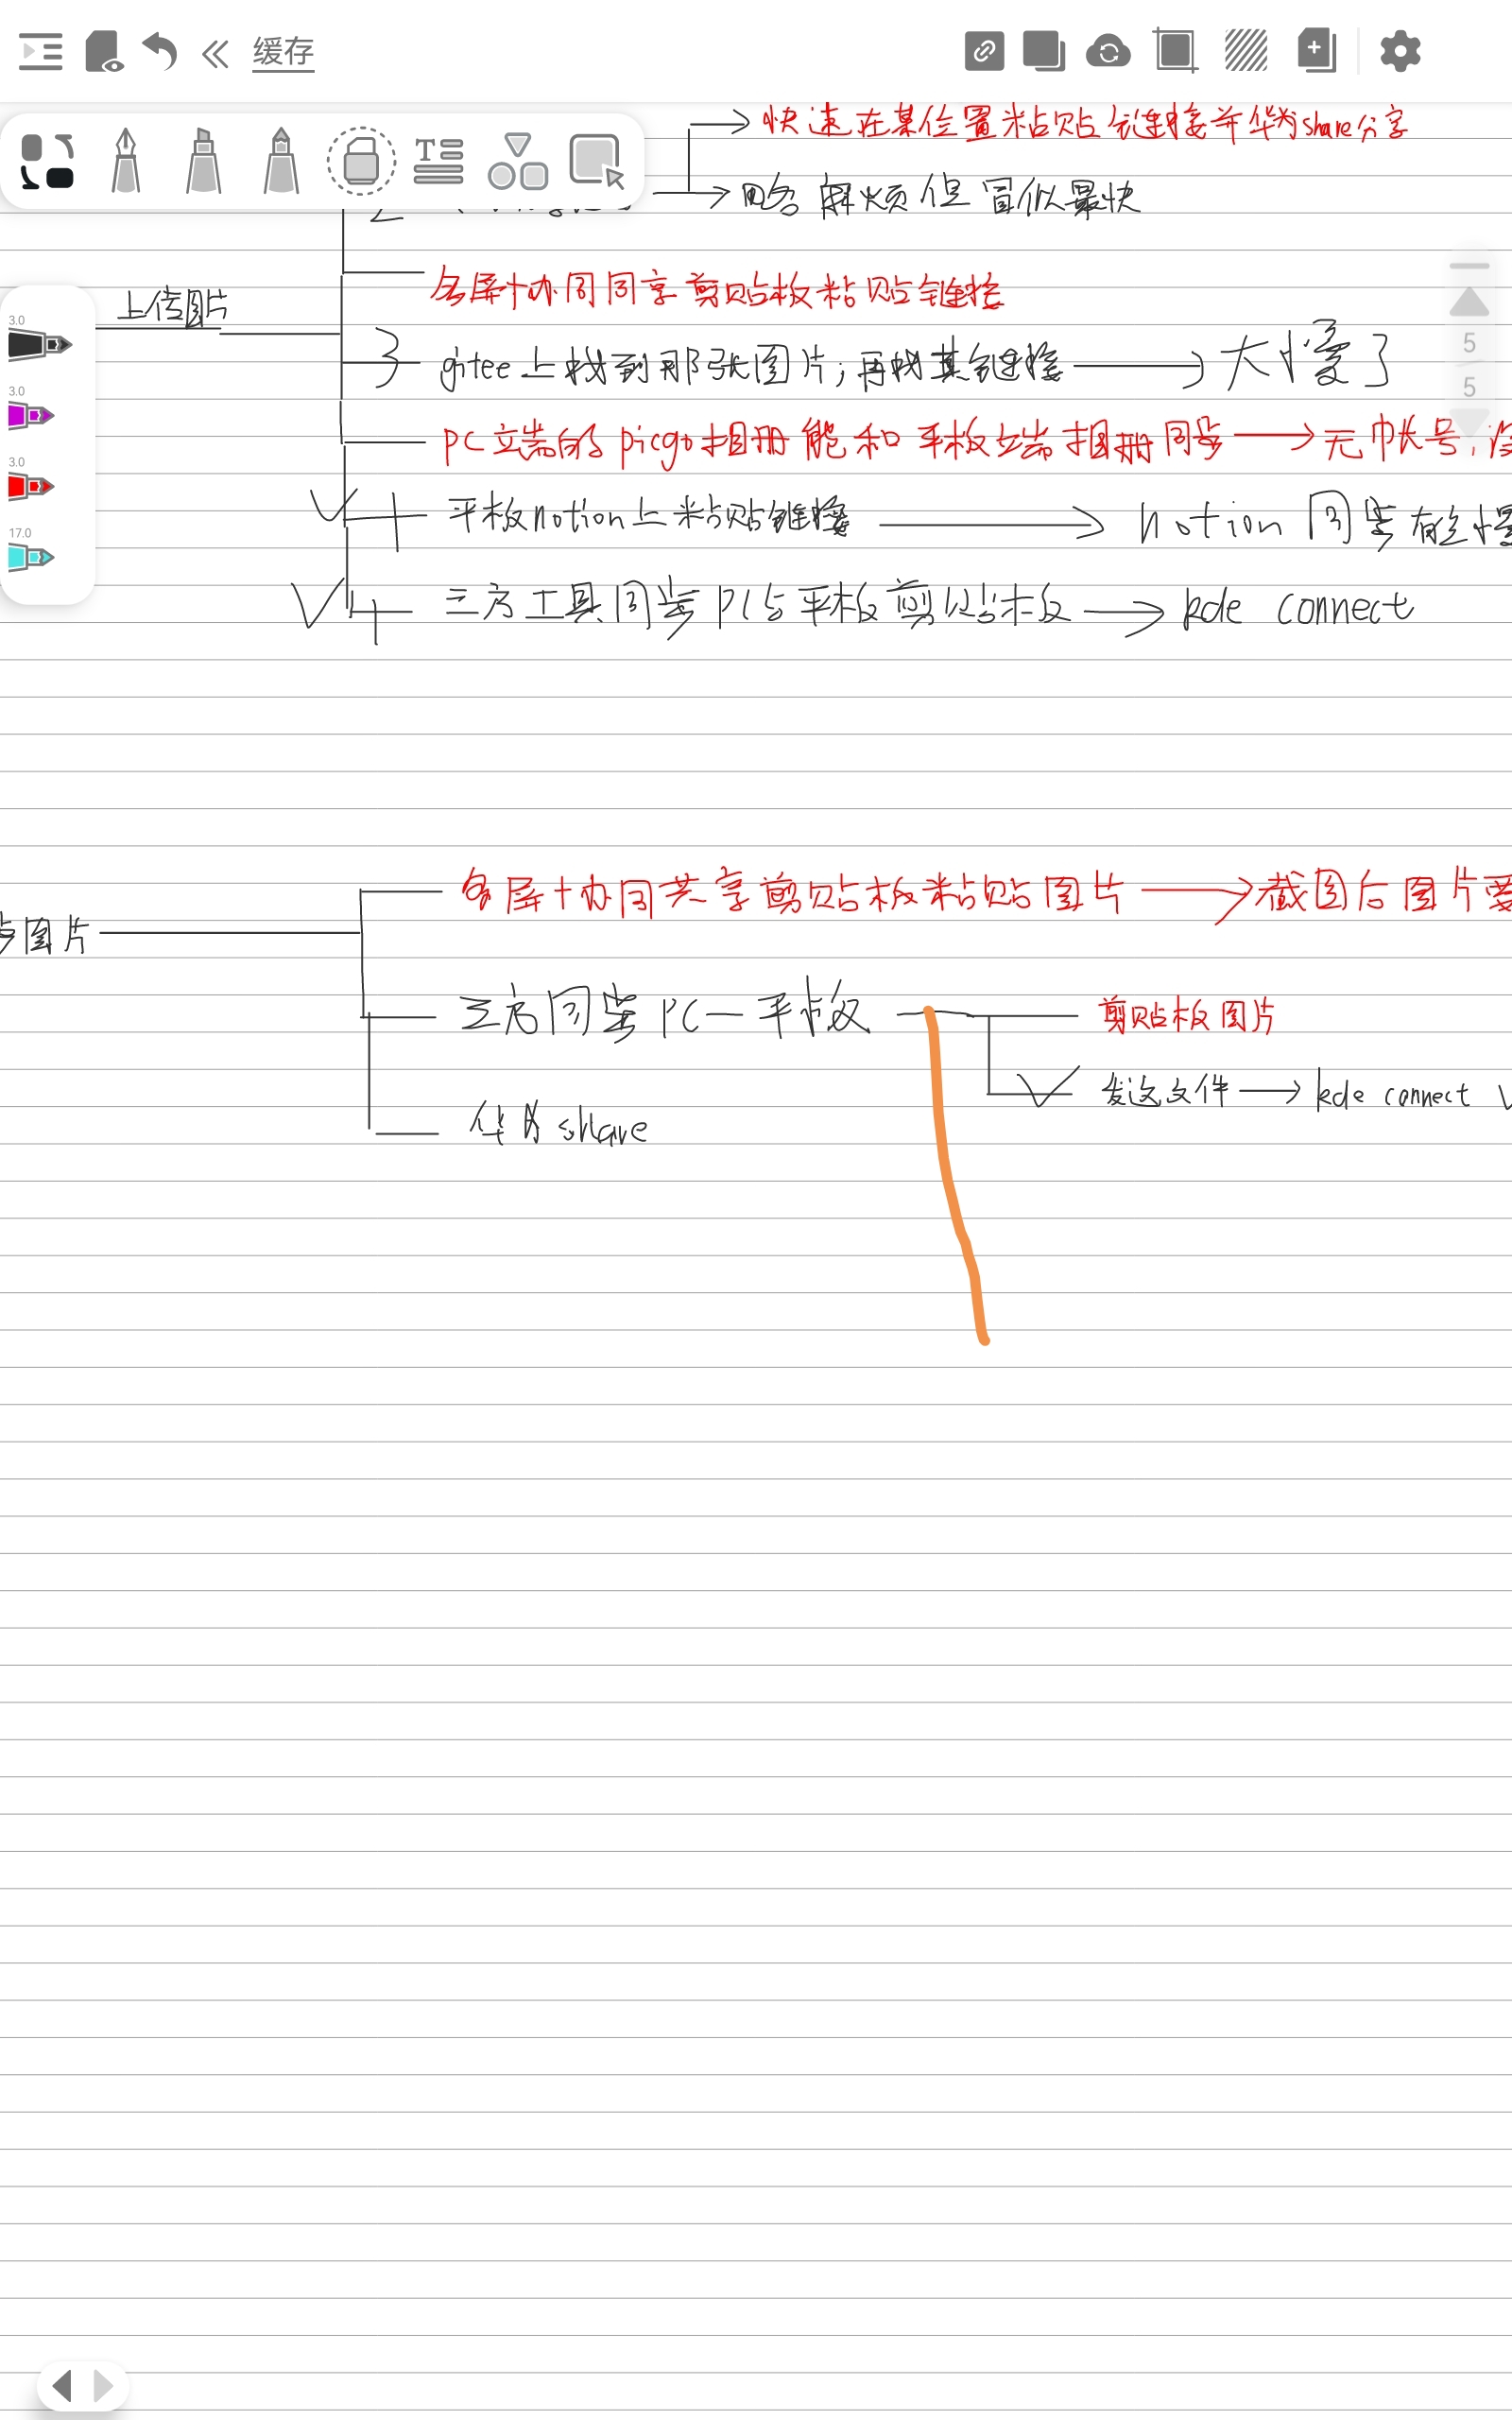 缓存
快速在某位置粘贴链接并华为share分享
略麻烦但冒似最快
2
上传图片
多屏协同同享剪贴板粘贴链接
3.0
3 gitee上找到那张图片;再找其链接 → 太慢了
5
3.0
5
PC端的picgo相册能和平板端相册同步 → 无帐号,
3.0
4 平板notion上粘贴链接 → notion同步有点慢
17.0
4 三方工具同步PC与平板剪贴板 → kde connect
多屏协同共享剪贴板粘贴图片 → 截图后图片要
步图片
三方同步PC—平板
剪贴板图片
发送文件 → kde connect
华为share